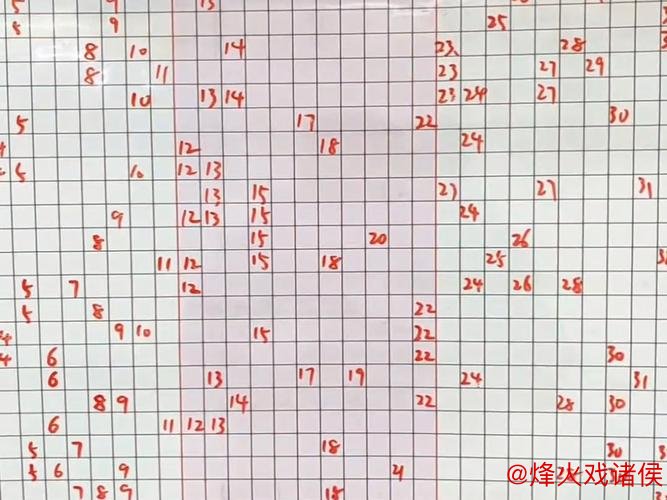 5 9 13
5 9 25
8 10 14 23 28
8 11 23 27 29
10 13 14 23 24 27
5 17 22 30
12 18 24
5 10 12 13
13 15 23 27 31
9 12 13 15 24
8 15 20 26
11 12 15 18 25
5 7 12 24 26 28
5 8 22
4 9 10 15 22
4 6 22 30
6 13 17 19 24 31
8 9 14 22 28 30
6 11 12 13
5 7 18 30
5 6 9 21
7 8 9 18
@烽火戏诸侯